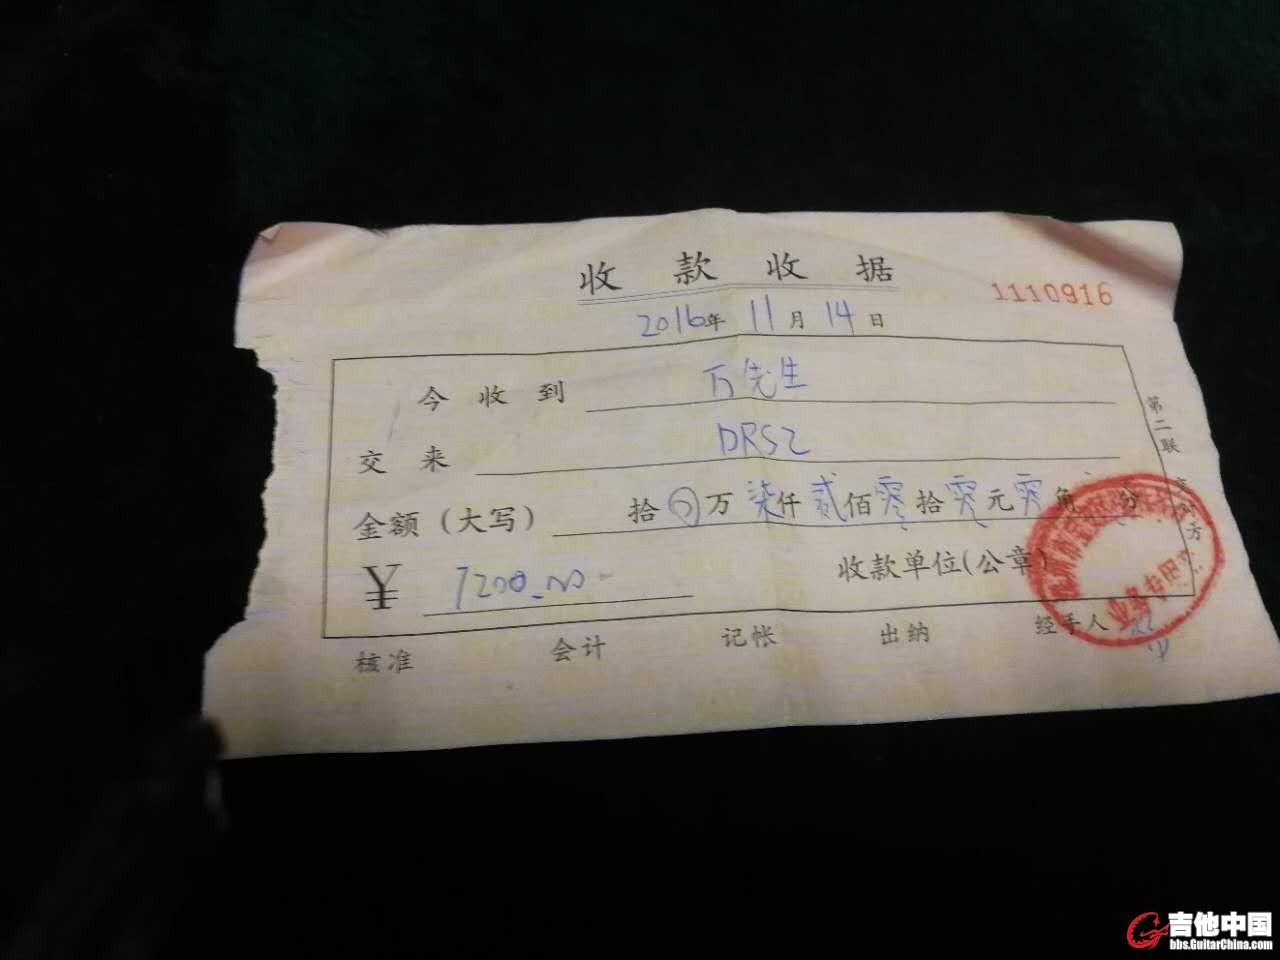 收款收据
1110916
2016年 11月 14日
今收到 万先生
交来 DRS2
金额(大写) 拾 万 柒仟 贰佰 零拾 零元 零角 分
¥ 7200.00
收款单位(公章)
核准 会计 记帐 出纳 经手人
第二联 交对方
业务专用
吉他中国
bbs.GuitarChina.com